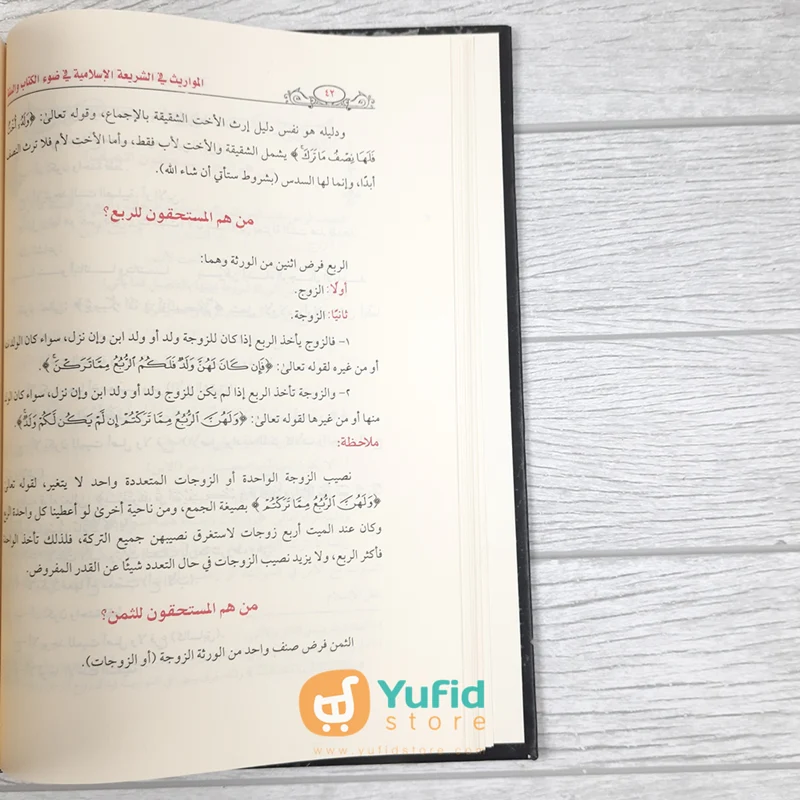 المواريث في الشريعة الإسلامية في ضوء الكتاب
٤٢
ودليله هو نفس دليل إرث الأخت الشقيقة بالإجماع، وقوله تعالىٰ: ﴿وَلَهُۥٓ أُخۡتٞ
فَلَهَا نِصۡفُ مَا تَرَكَۚ﴾ يشمل الشقيقة والأخت لأب فقط، وأما الأخت لأم فلا ترث النصف
أبدًا، وإنما لها السدس (بشروط ستأتي أن شاء الله).
من هم المستحقون للربع؟
الربع فرض اثنين من الورثة وهما:
أولًا: الزوج.
ثانيًا: الزوجة.
١- فالزوج يأخذ الربع إذا كان للزوجة ولد أو ولد ابن وإن نزل، سواء كان الولد
أو من غيره لقوله تعالىٰ: ﴿فَإِن كَانَ لَهُنَّ وَلَدٞ فَلَكُمُ ٱلرُّبُعُ مِمَّا تَرَكۡنَۚ﴾.
٢- والزوجة تأخذ الربع إذا لم يكن للزوج ولد أو ولد ابن وإن نزل، سواء كان
منها أو من غيرها لقوله تعالىٰ: ﴿وَلَهُنَّ ٱلرُّبُعُ مِمَّا تَرَكۡتُمۡ إِن لَّمۡ يَكُن لَّكُمۡ وَلَدٞۚ﴾.
ملاحظة:
نصيب الزوجة الواحدة أو الزوجات المتعددة واحد لا يتغير، لقوله
﴿وَلَهُنَّ ٱلرُّبُعُ مِمَّا تَرَكۡتُمۡ﴾ بصيغة الجمع، ومن ناحية أخرىٰ لو أعطينا كل واحدة
وكان عند الميت أربع زوجات لاستغرق نصيبهن جميع التركة، فلذلك تأخذ
فأكثر الربع، ولا يزيد نصيب الزوجات في حال التعدد شيئًا عن القدر المفروض.
من هم المستحقون للثمن؟
الثمن فرض صنف واحد من الورثة الزوجة (أو الزوجات).
Yufid
store
www.yufidstore.com